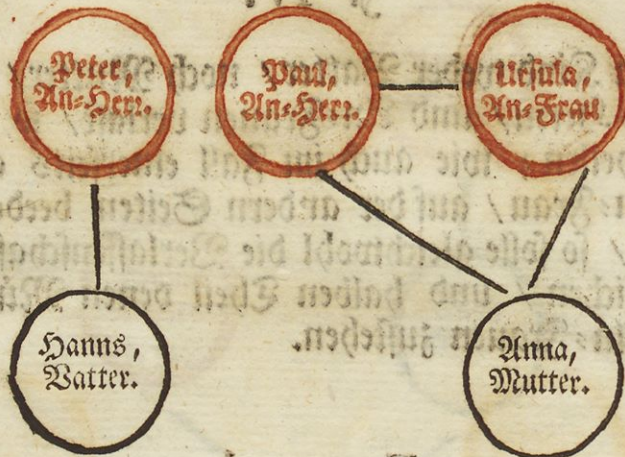 Peter,
An-Herr.
Paul,
An-Herr.
Ursula,
An-Frau
Hanns,
Vatter.
Anna,
Mutter.